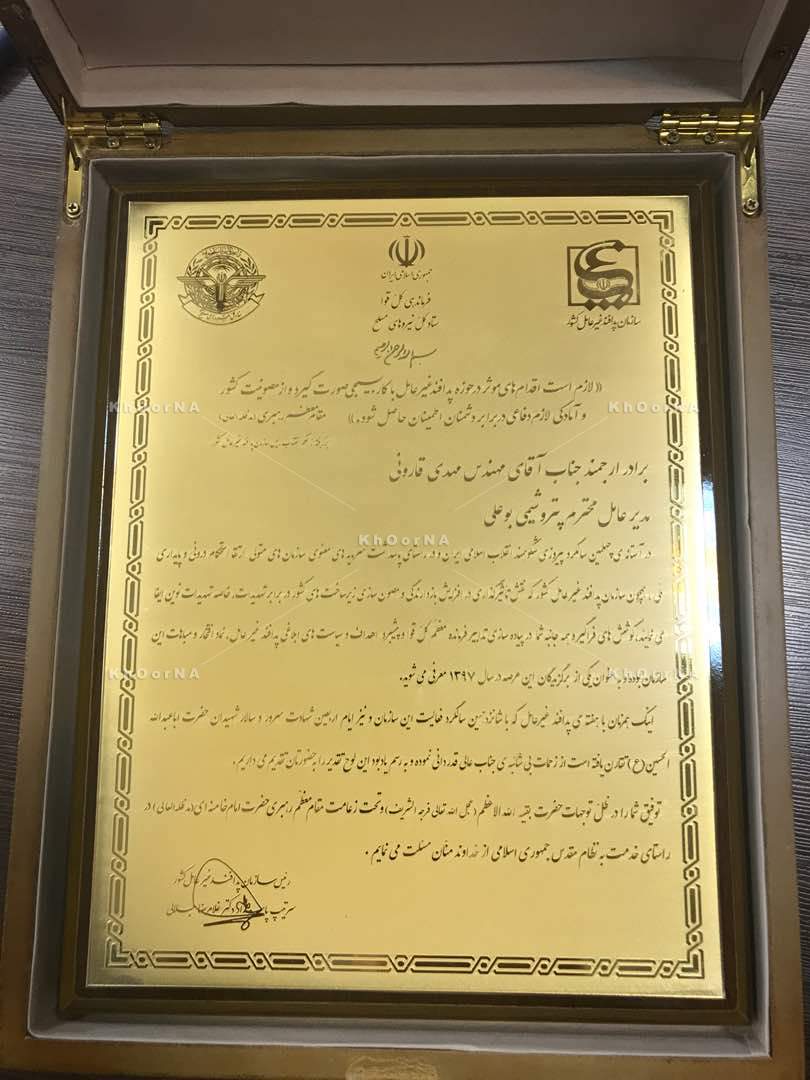 جمهوری اسلامی ایران
فرماندهی کل قوا
ستاد کل نیروهای مسلح
سازمان پدافند غیر عامل کشور
بسم الله الرحمن الرحیم
«لازم است اقدام های موثر در حوزه پدافند غیر عامل با کار بسیجی صورت گیرد و از مصونیت کشور
و آمادگی لازم دفاعی در برابر دشمنان اطمینان حاصل شود.» مقام معظم رهبری (مدظله العالی)
KhOorNA KhOorNA
برادر ارجمند جناب آقای مهندس مهدی قارونی
مدیر عامل محترم پتروشیمی بوعلی
KhOorNA
در آستانه ی چهلمین سالگرد پیروزی شکوهمند انقلاب اسلامی ایران و در راستای پاسداشت سرمایه های معنوی سازمان های متولی ارتقا استحکام درونی و پایداری
ملی همچون سازمان پدافند غیر عامل کشور که نقش تاثیرگذاری در افزایش بازدارندگی و مصون سازی زیرساخت های کشور در برابر تهدیدات خاصه تهدیدات نوین ایفا
می نمایند، کوشش های فراگیر و همه جانبه شما در پیاده سازی تدابیر فرمانده معظم کل قوا و پیشبرد اهداف و سیاست های ابلاغی پدافند غیر عامل، نماد افتخار و مباهات این
سازمان بوده و به عنوان یکی از برگزیدگان این عرصه در سال ۱۳۹۷ معرفی می شوید.
KhOorNA KhOorNA
اینک همزمان با هفته ی پدافند غیر عامل که با شانزدهمین سالگرد فعالیت این سازمان و نیز ایام اربعین شهادت سرور و سالار شهیدان حضرت اباعبدالله
الحسین (ع) تقارن یافته است از زحمات بی شائبه ی جناب عالی قدردانی نموده و به رسم یادبود این لوح تقدیر را به حضورتان تقدیم می داریم.
توفیق شما را در ظل توجهات حضرت بقیه الله الاعظم (عجل الله تعالی فرجه الشریف) و تحت زعامت مقام معظم رهبری حضرت امام خامنه ای (مدظله العالی) در
راستای خدمت به نظام مقدس جمهوری اسلامی از خداوند منان مسئلت می نمایم.
رئیس سازمان پدافند غیر عامل کشور
سرتیپ پاسدار دکتر غلامرضا جلالی